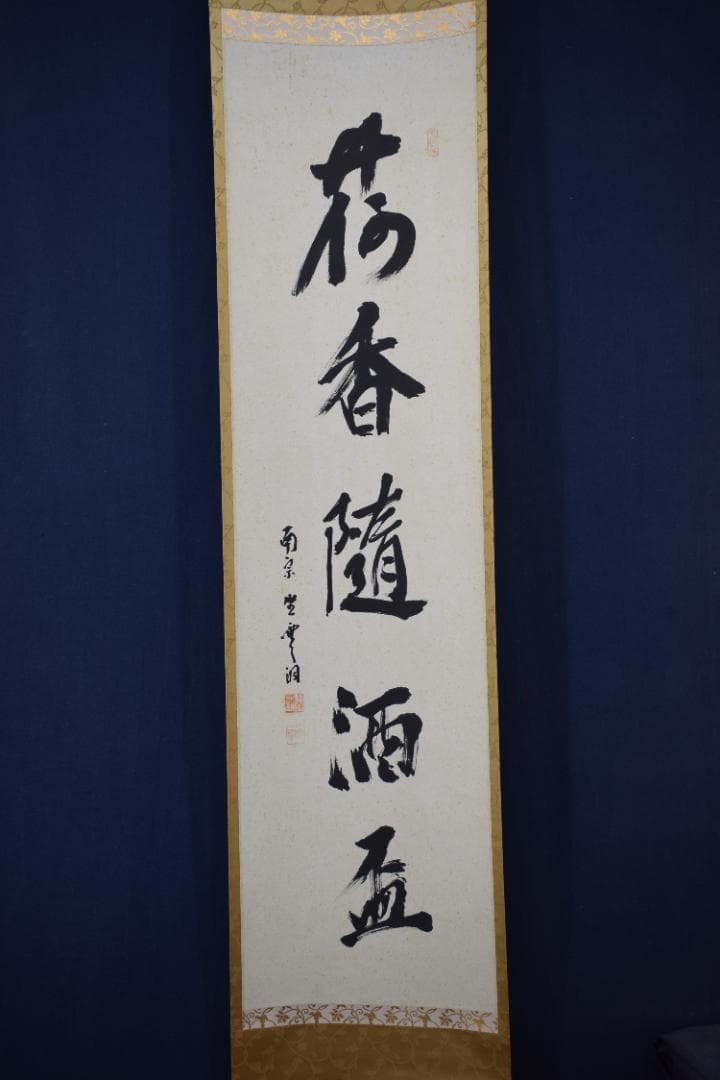 荷香随酒盃
南宗